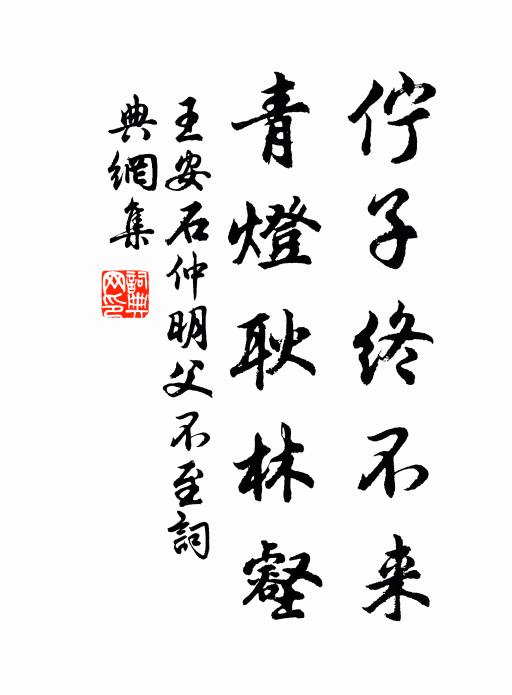 佇子終不来
青燈耿林壑
王安石仲明父不至詞
典網集
詞典網印